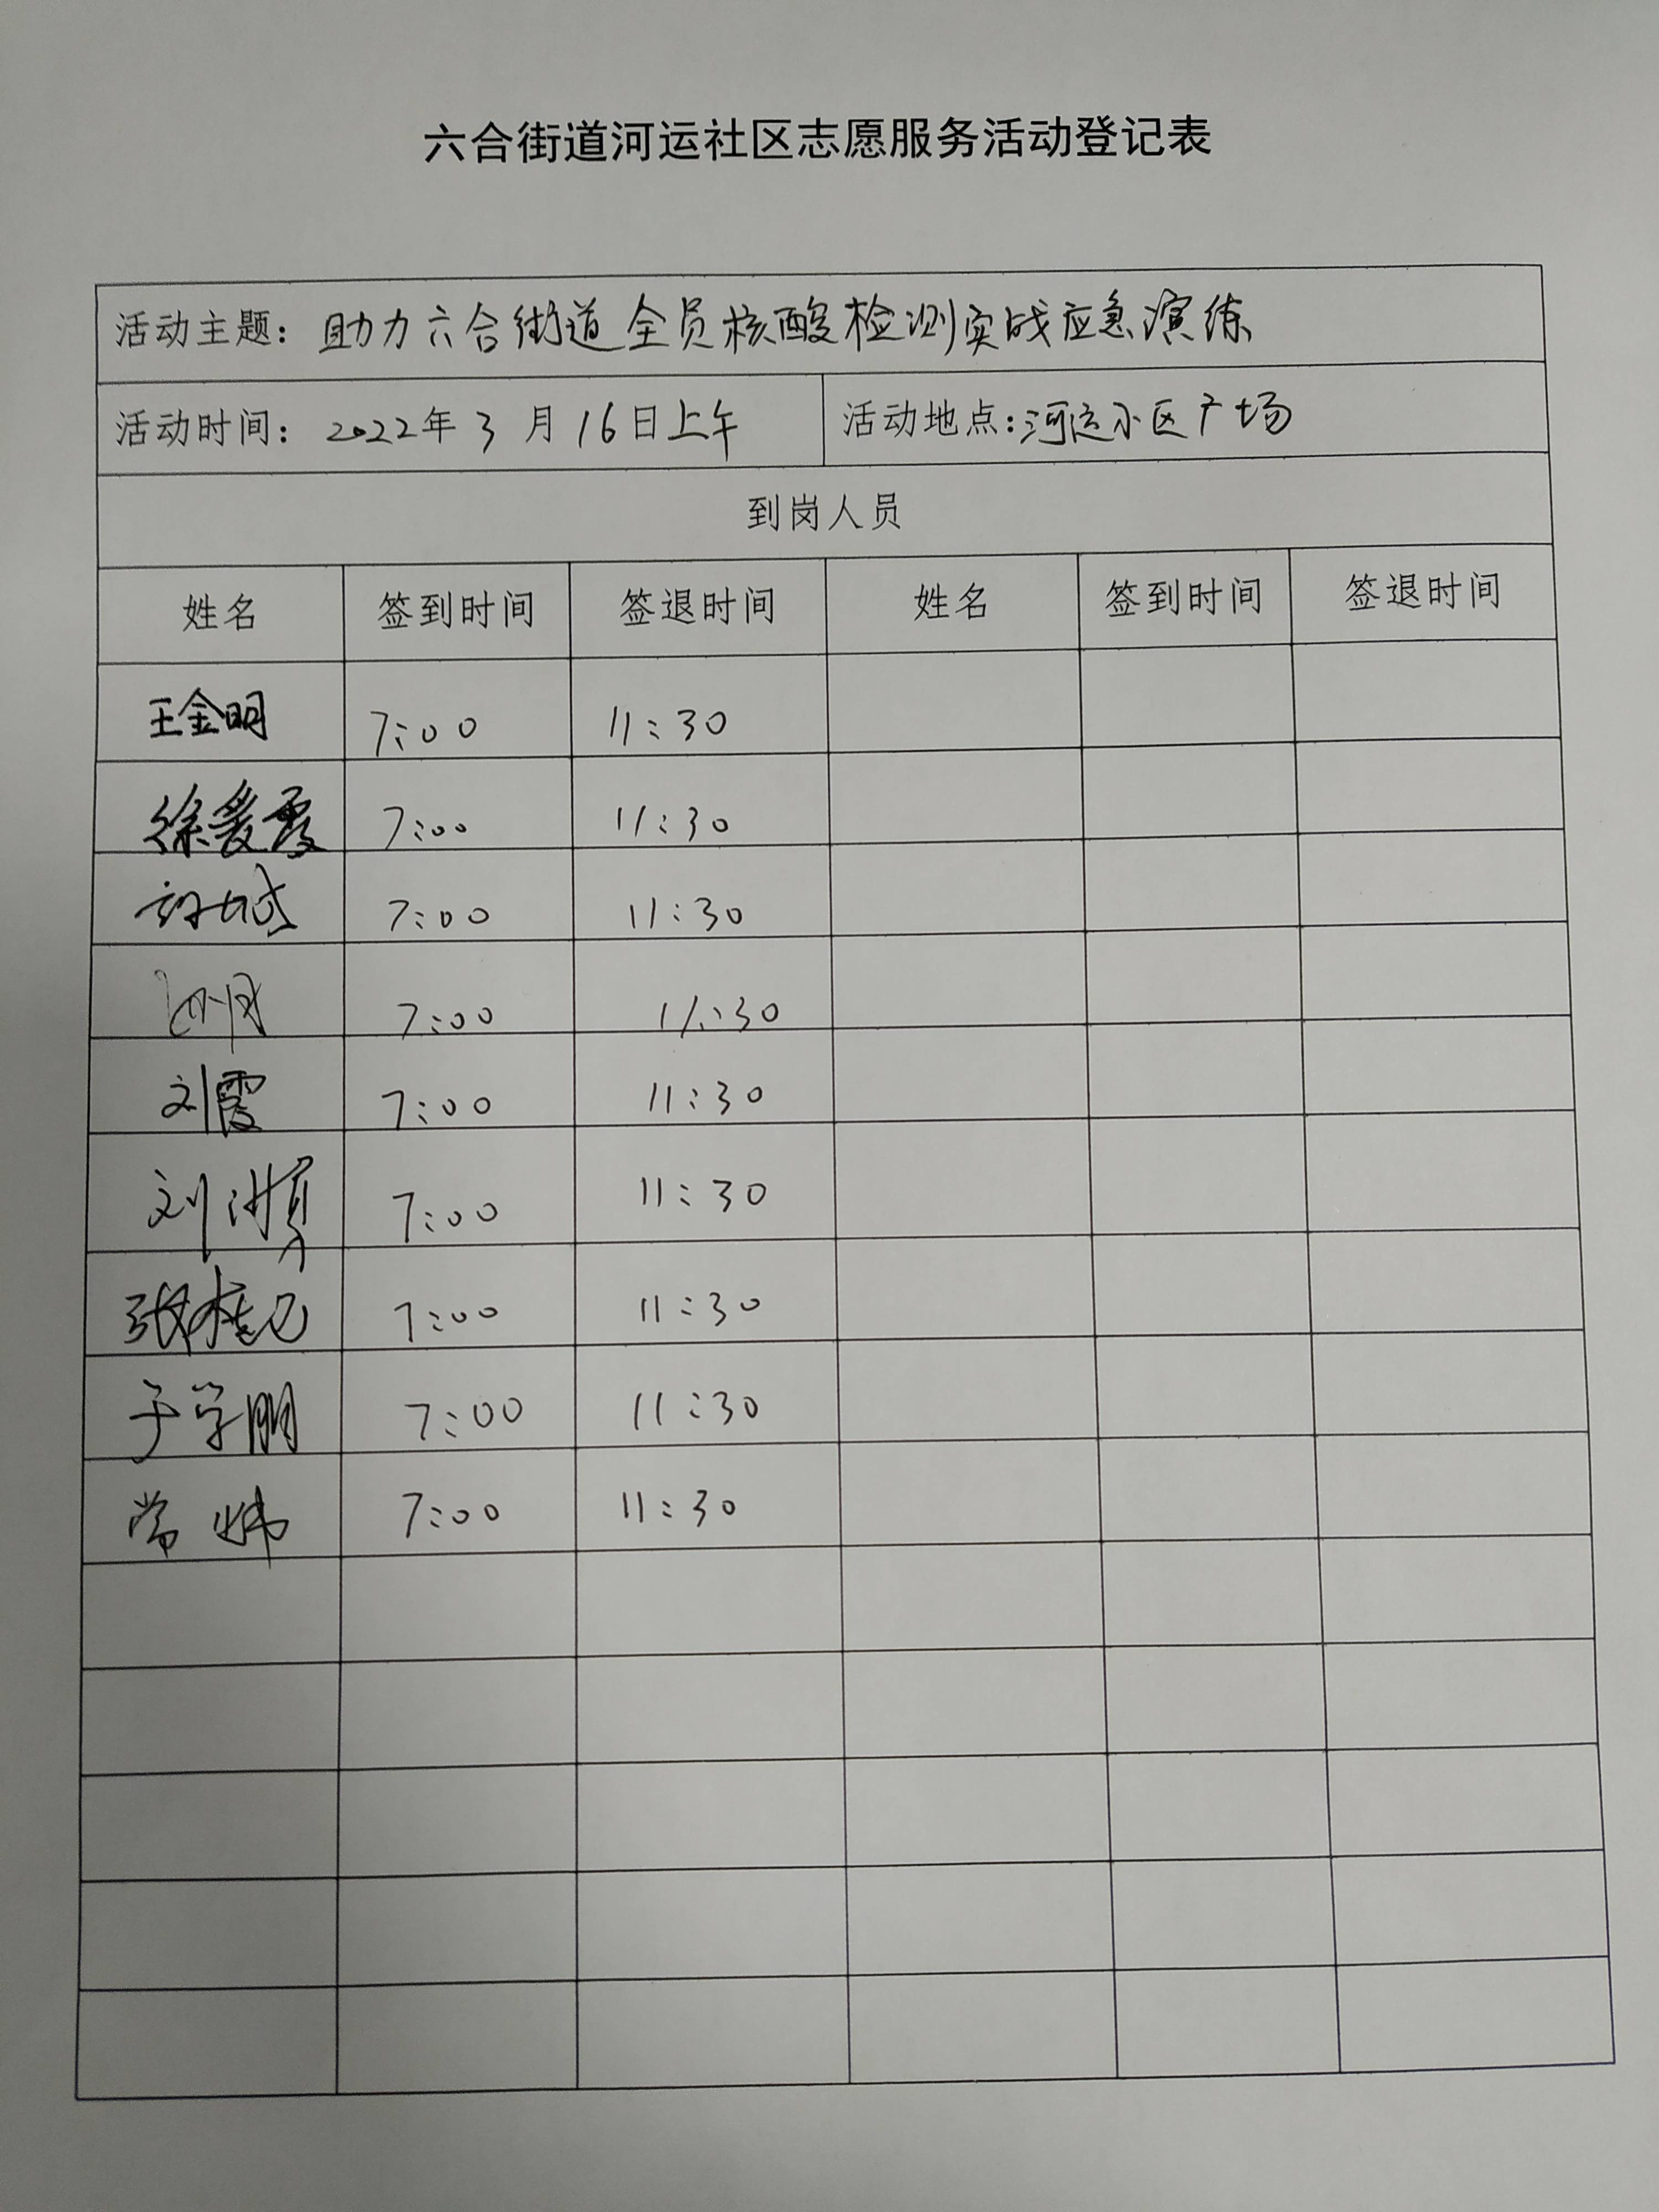 六合街道河运社区志愿服务活动登记表
活动主题：助力六合街道全员核酸检测实战应急演练
活动时间：2022年3月16日上午 活动地点：河运小区广场
到岗人员
姓名 签到时间 签退时间 姓名 签到时间 签退时间
王金明 7:00 11:30
徐爱霞 7:00 11:30
7:00 11:30
7:00 11:30
刘霞 7:00 11:30
刘 7:00 11:30
张 7:00 11:30
于学朋 7:00 11:30
常炜 7:00 11:30